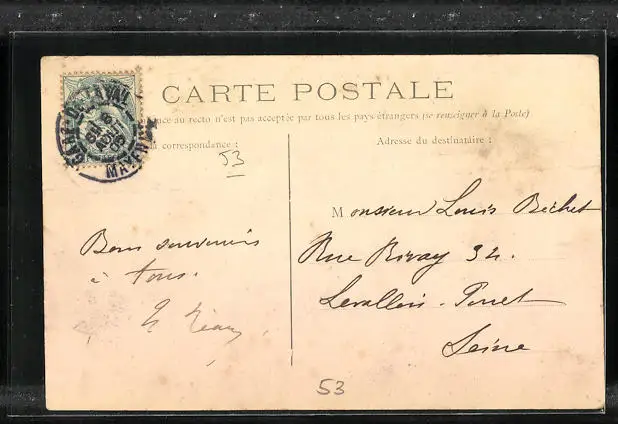 CARTE POSTALE
nce au recto n'est pas acceptée par tous les pays étrangers (se renseigner à la Poste)
a correspondance :
Adresse du destinataire :
GARE DE LAVAL
MAYENNE
53
Monsieur Louis Bechet
Rue Rivay 32.
Levallois-Perret
Seine
Bons souvenirs
à tous.
53